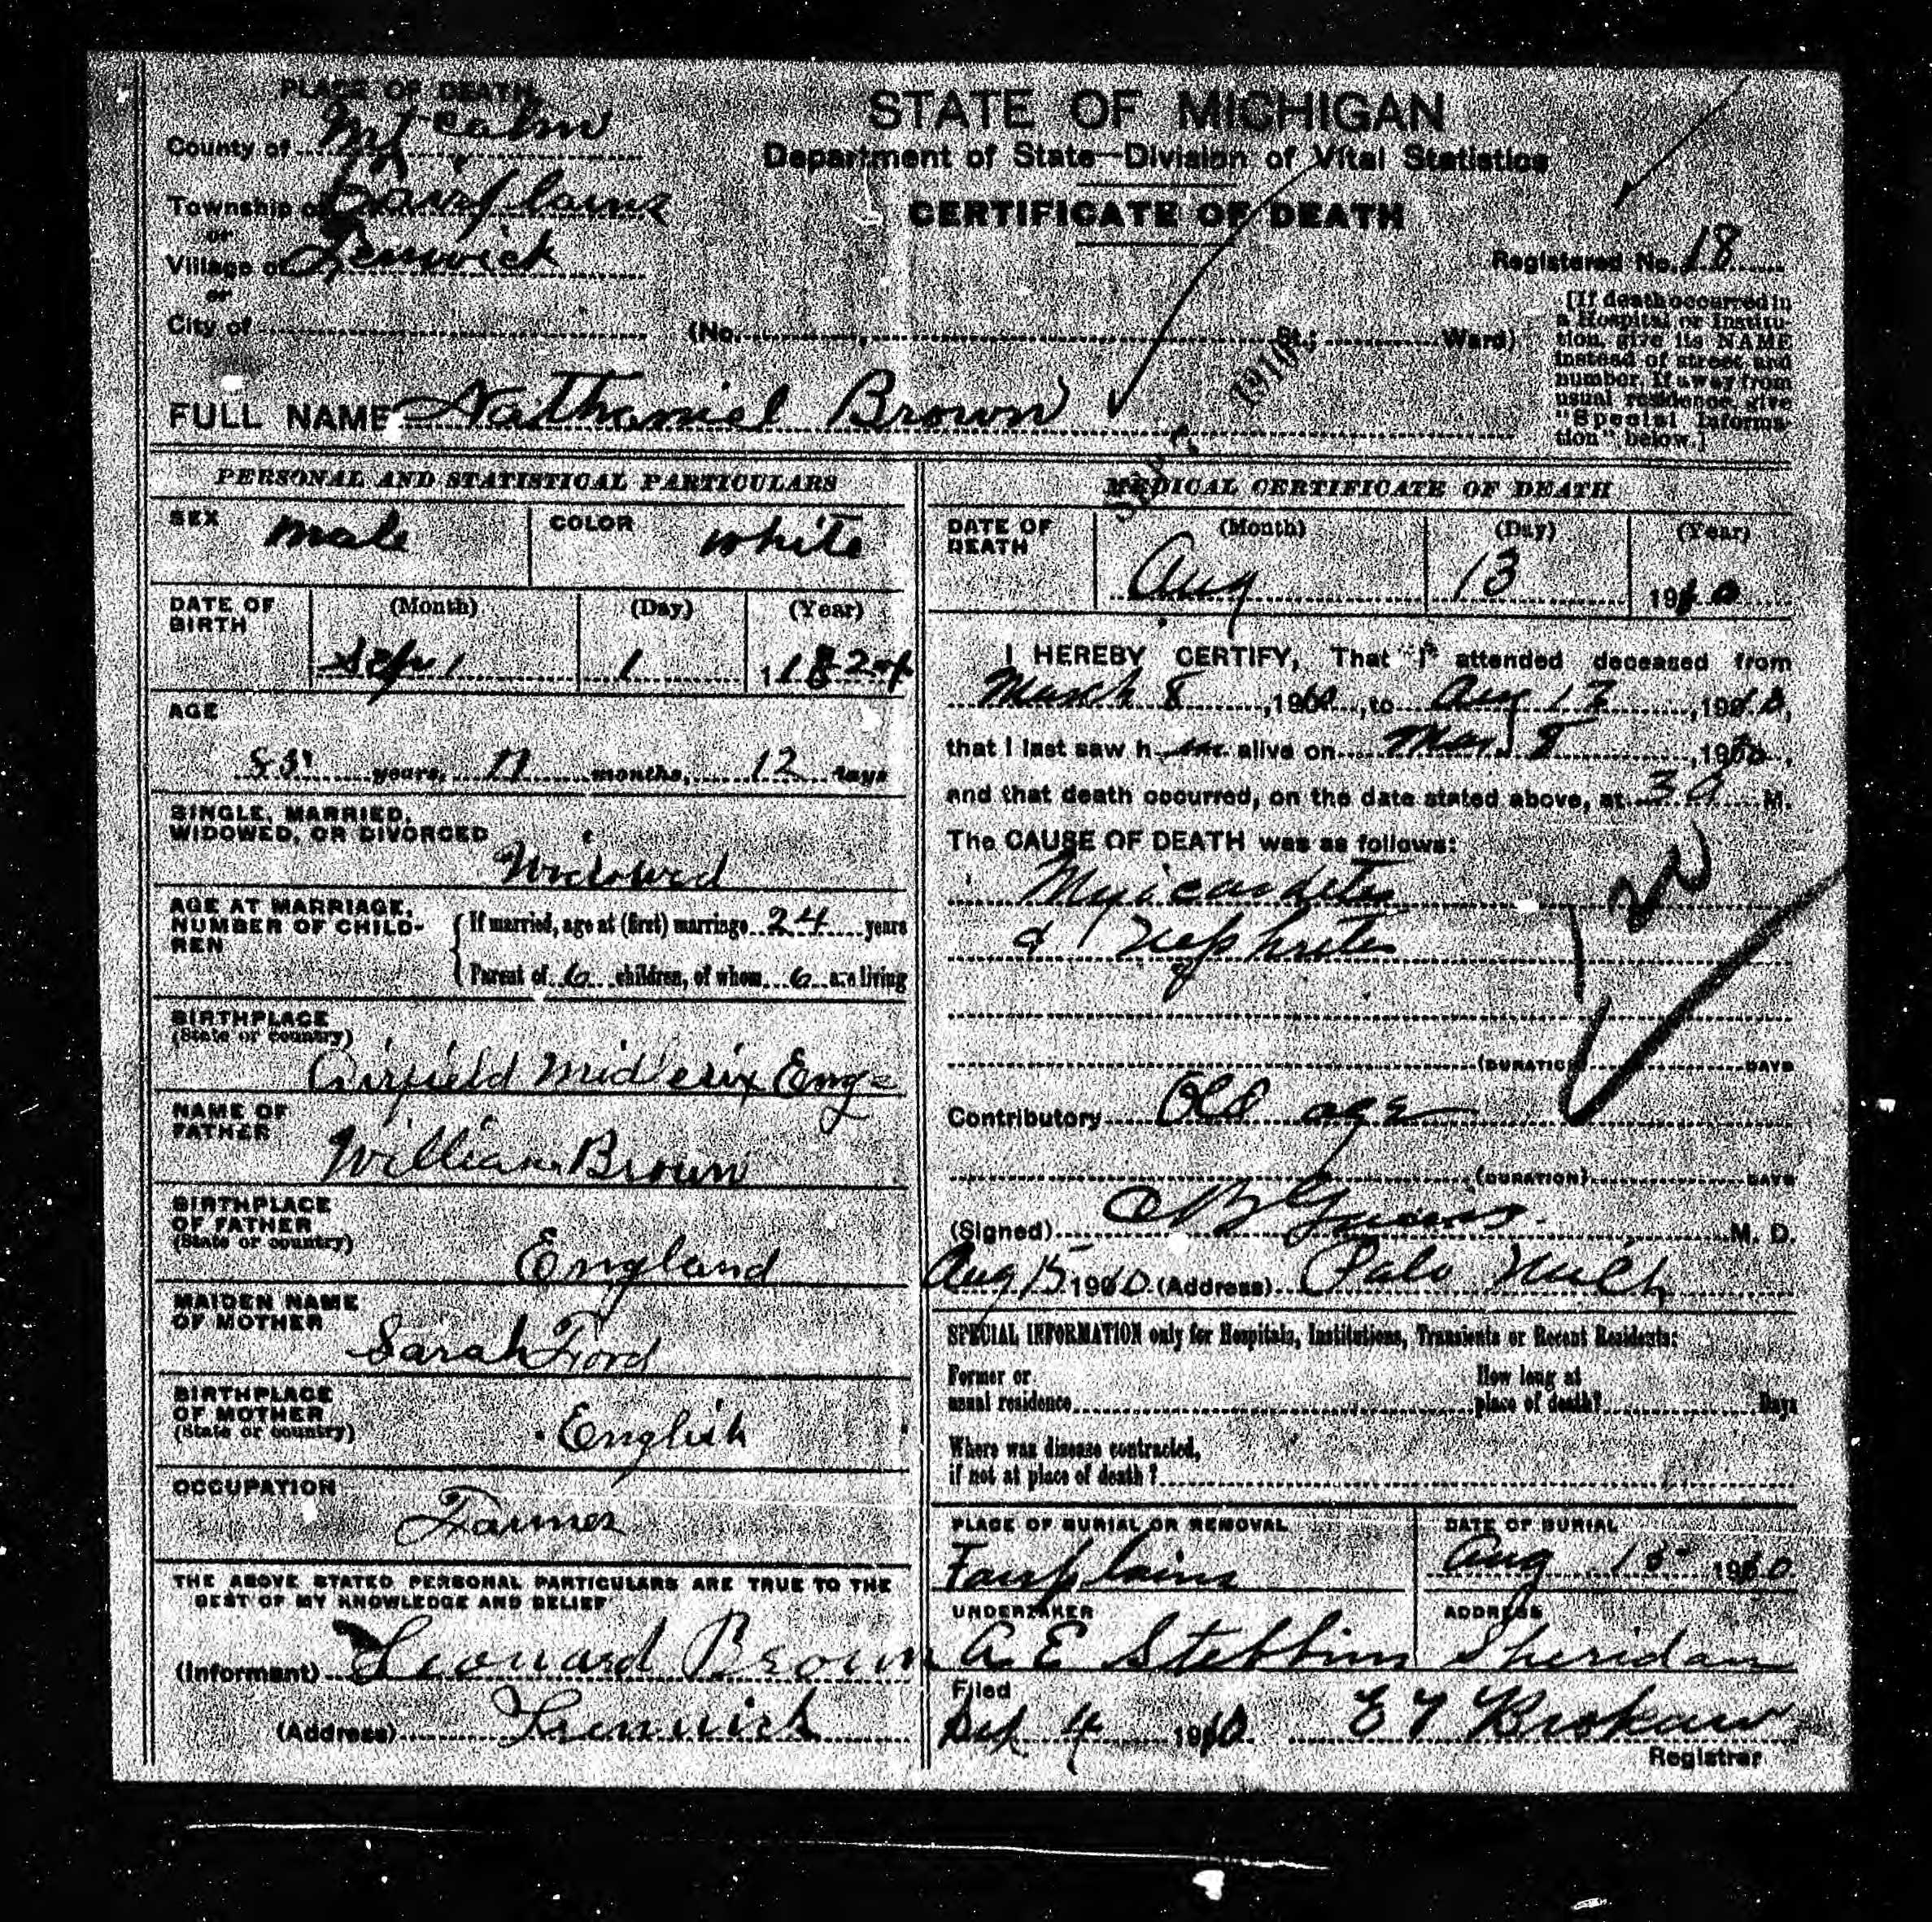 PLACE OF DEATH
County of Mtcalm
Township of Fairplains
or
Village of Fenwick
or
City of
STATE OF MICHIGAN
Department of State—Division of Vital Statistics
CERTIFICATE OF DEATH
Registered No. 18
(No. , St.; Ward)
[If death occurred in
a Hospital or Institu-
tion, give its NAME
instead of street and
number. If away from
usual residence, give
"Special Informa-
tion" below.]
FULL NAME Nathaniel Brown
1910
PERSONAL AND STATISTICAL PARTICULARS
SEX male COLOR white
DATE OF BIRTH (Month) (Day) (Year)
Sept 1 1824
AGE
85 years, 11 months, 12 days
SINGLE, MARRIED,
WIDOWED, OR DIVORCED
Widowed
AGE AT MARRIAGE,
NUMBER OF CHILD-
REN
If married, age at (first) marriage 24 years
Parent of 6 children, of whom 6 are living
BIRTHPLACE
(State or country)
Midlesix Eng
NAME OF
FATHER
William Brown
BIRTHPLACE
OF FATHER
(State or country)
England
MAIDEN NAME
OF MOTHER
Sarah Ford
BIRTHPLACE
OF MOTHER
(State or country)
English
OCCUPATION
Farmer
THE ABOVE STATED PERSONAL PARTICULARS ARE TRUE TO THE
BEST OF MY KNOWLEDGE AND BELIEF
(Informant) Leonard Brown
(Address) Fenwick
MEDICAL CERTIFICATE OF DEATH
DATE OF DEATH (Month) (Day) (Year)
Aug 13 1910
I HEREBY CERTIFY, That I attended deceased from
March 8, 1910, to Aug 13, 1910,
that I last saw h im alive on Mar 8, 1910,
and that death occurred, on the date stated above, at 3 a M.
The CAUSE OF DEATH was as follows:
Myicardites
& Nephrites
(DURATION) DAYS
Contributory Old age
(DURATION) DAYS
(Signed) M. D.
Aug 15 1910 (Address) Palo Mich
SPECIAL INFORMATION only for Hospitals, Institutions, Transients or Recent Residents:
Former or
usual residence
How long at
place of death? Days
Where was disease contracted,
if not at place of death?
PLACE OF BURIAL OR REMOVAL
Fairplains
DATE OF BURIAL
Aug 15 1910
UNDERTAKER
A E Stebbins
ADDRESS
Sheridan
Filed
Sep 4 1910 E Y Brokaw
Registrar